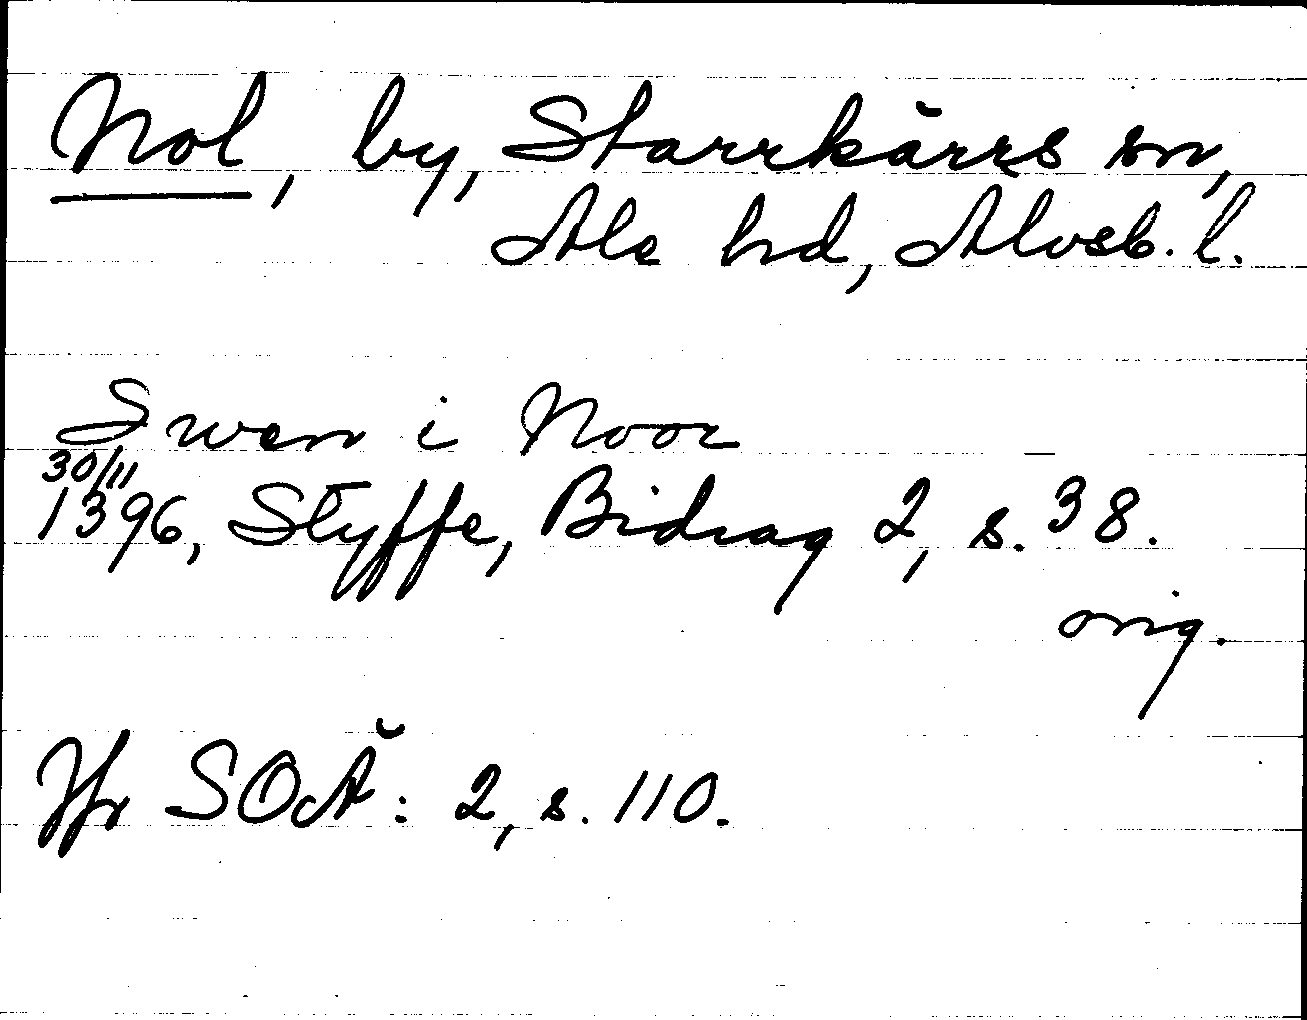 Nol, by, Starrkärrs sn,
Ale hd, Älvsb. l.
Swen i Noor
30/11
1396, Styffe, Bidrag 2, s. 38.
orig.
Jfr SOÄ: 2, s. 110.